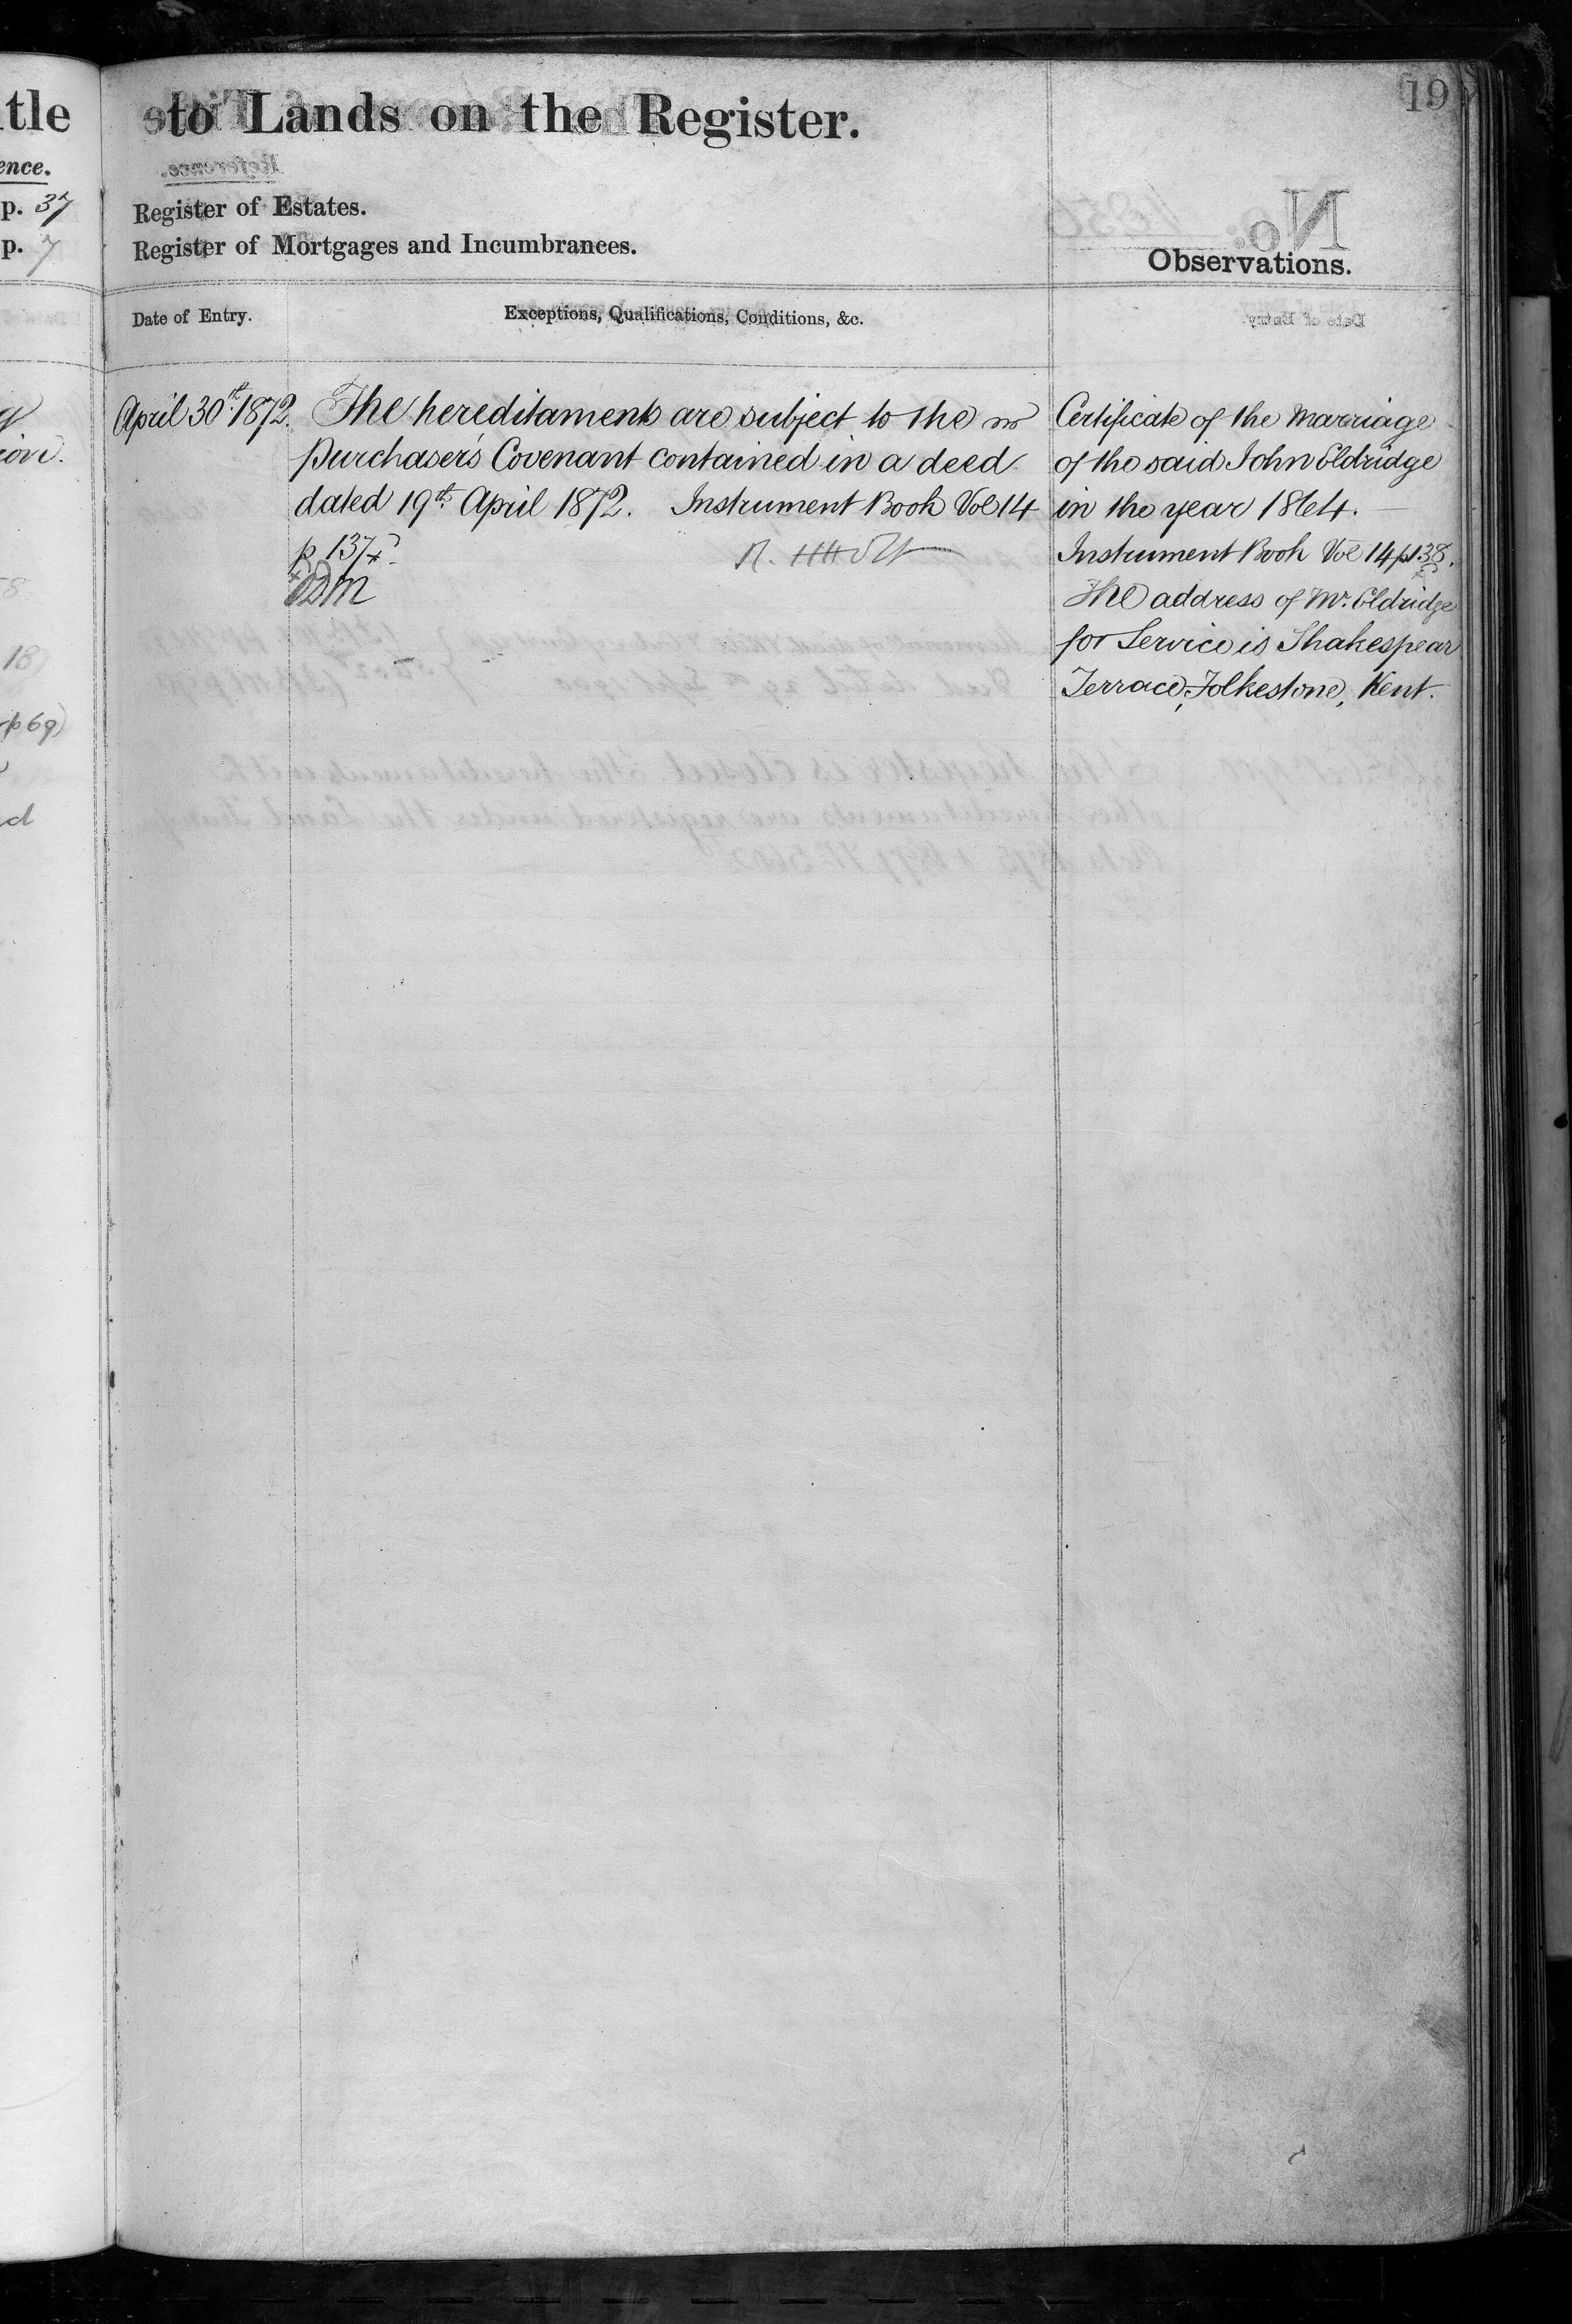 19
tle
to Lands on the Register.
ence.
p. 37
p. 7
Register of Estates.
Register of Mortgages and Incumbrances.
Observations.
Date of Entry.
Exceptions, Qualifications, Conditions, &c.
April 30th 1872.
The hereditaments are subject to the
Purchaser's Covenant contained in a deed
dated 19th April 1872. Instrument Book Vol 14
p 137
Certificate of the Marriage
of the said John Eldridge
in the year 1864.
Instrument Book Vol 14 p 138.
The address of Mr. Eldridge
for Service is Shakespear
Terrace, Folkestone, Kent.
ion.
18)
p 69)
d